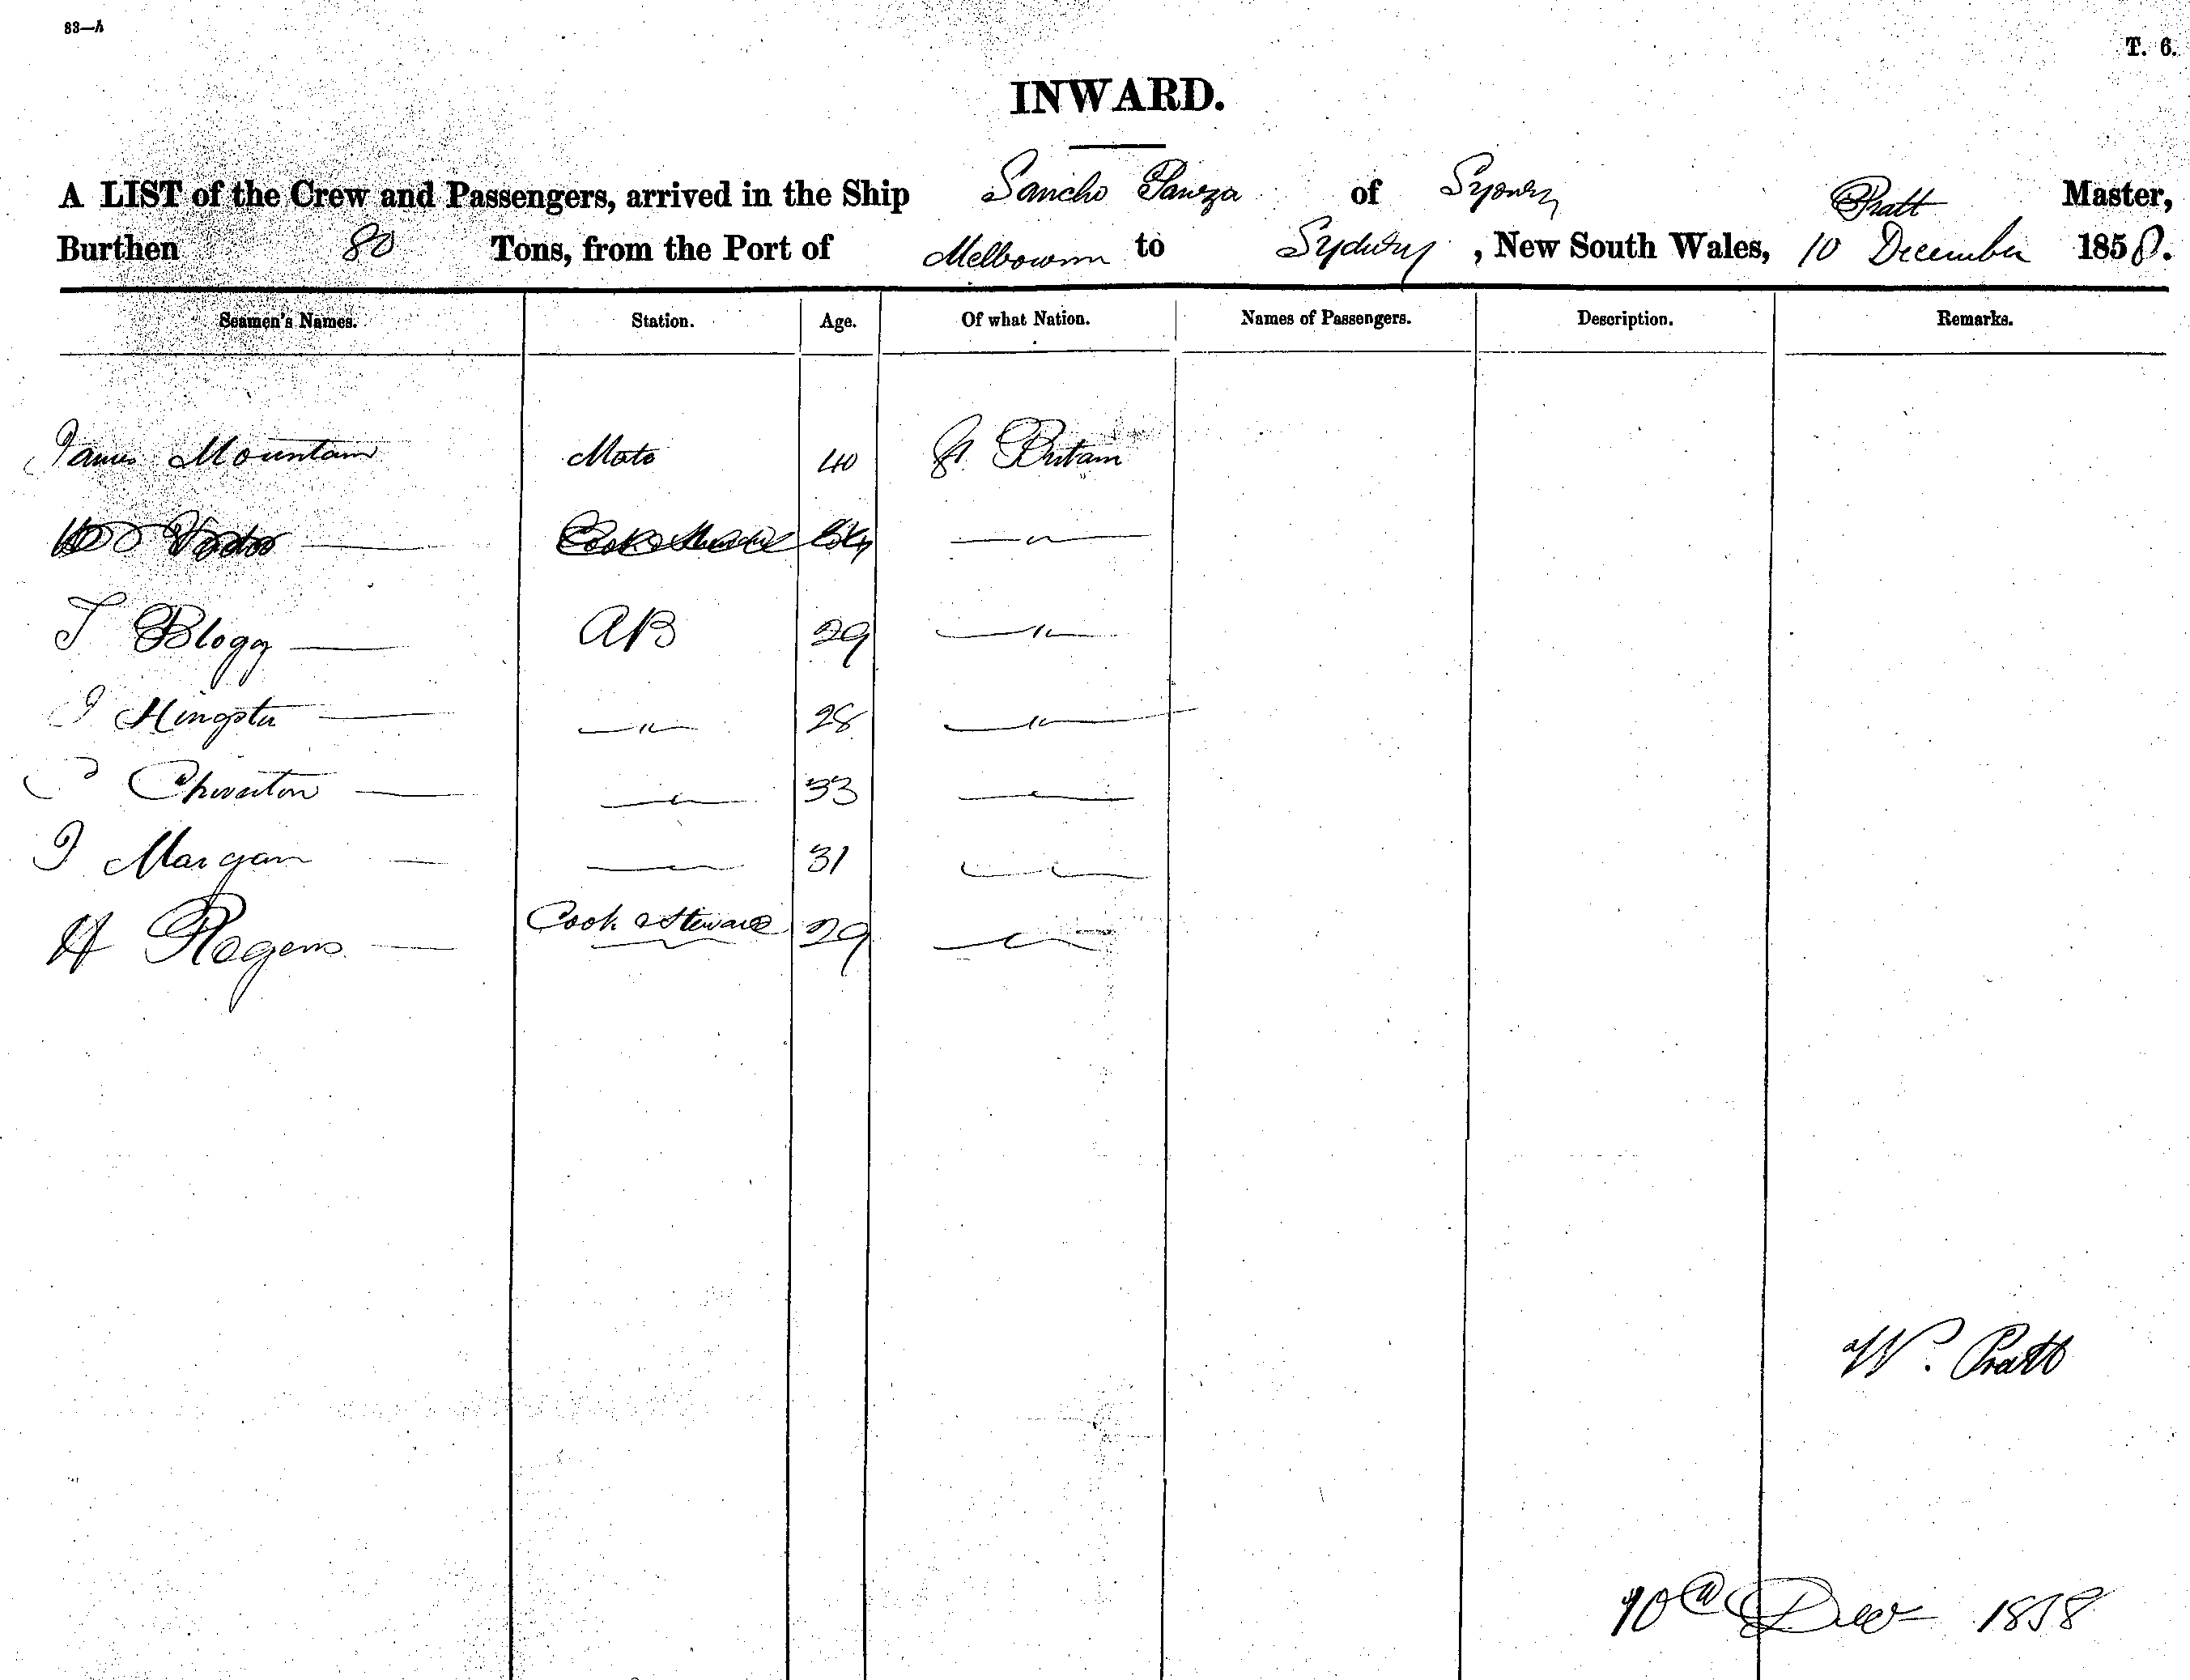 83—h
T. 6.
INWARD.
A LIST of the Crew and Passengers, arrived in the Ship Sancho Panza of Sydney Pratt Master,
Burthen 80 Tons, from the Port of Melbourne to Sydney, New South Wales, 10 December 1858.
Seamen's Names. Station. Age. Of what Nation. Names of Passengers. Description. Remarks.
James Mountain Mate 40 Gt Britain
Cook & Steward — " —
T Blogg — AB 29 — " —
J — — " — 28 — " —
Chiverton — — " — 33 — " —
J Morgan — — " — 31 — " —
H Rogers — Cook & Steward 29 — " —
W. Pratt
10 Dec 1858